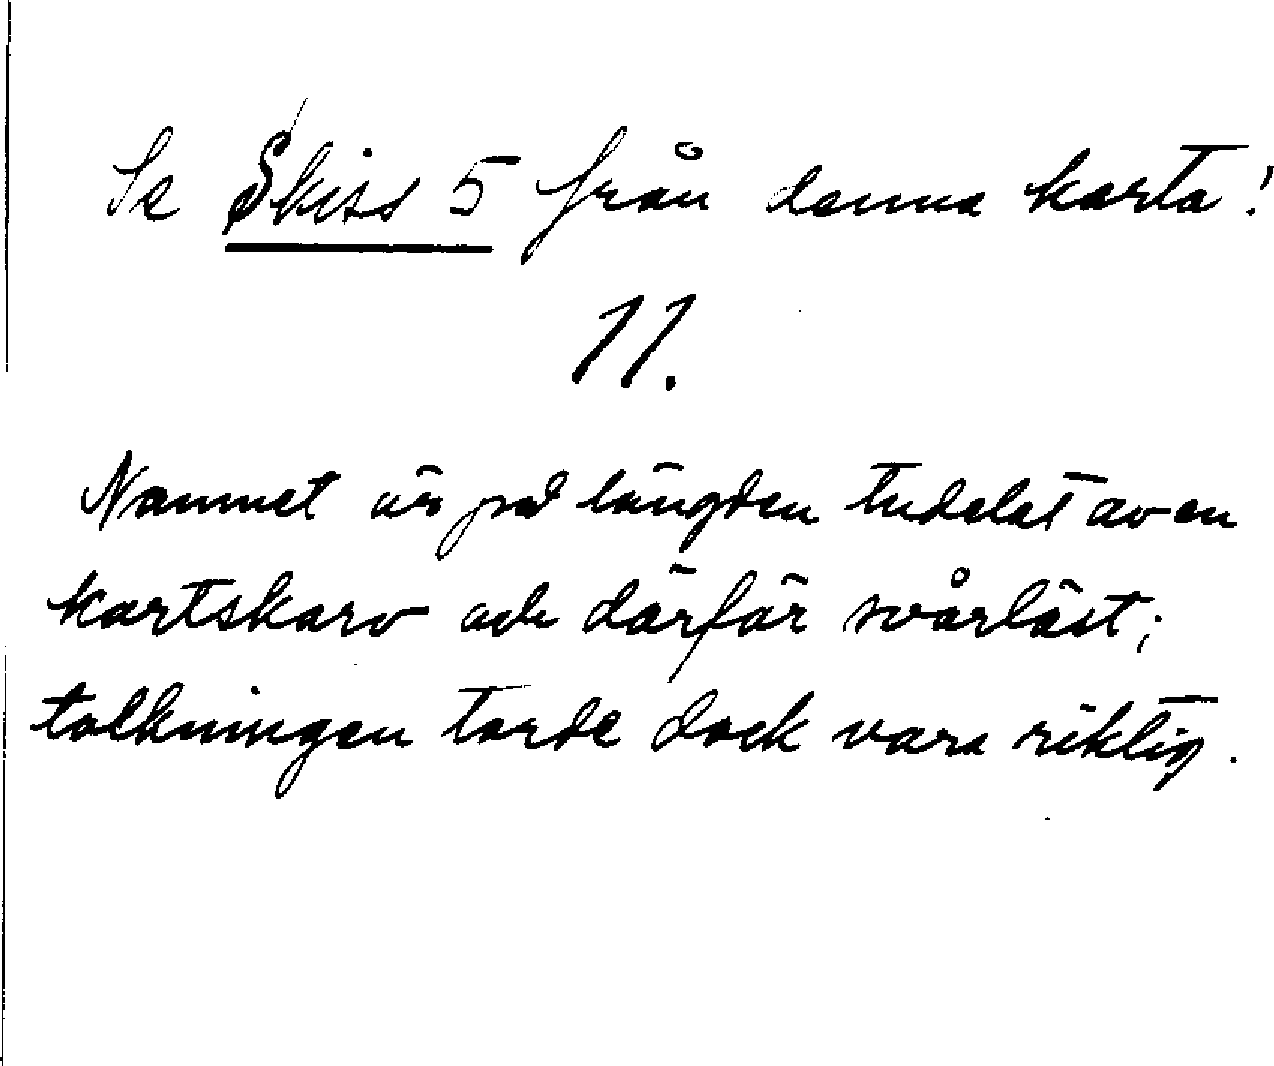 Se Skiss 5 från denna karta!
11.
Namnet är på längden tudelat av en
kartskarv och därför svårläst;
tolkningen torde dock vara riktig.